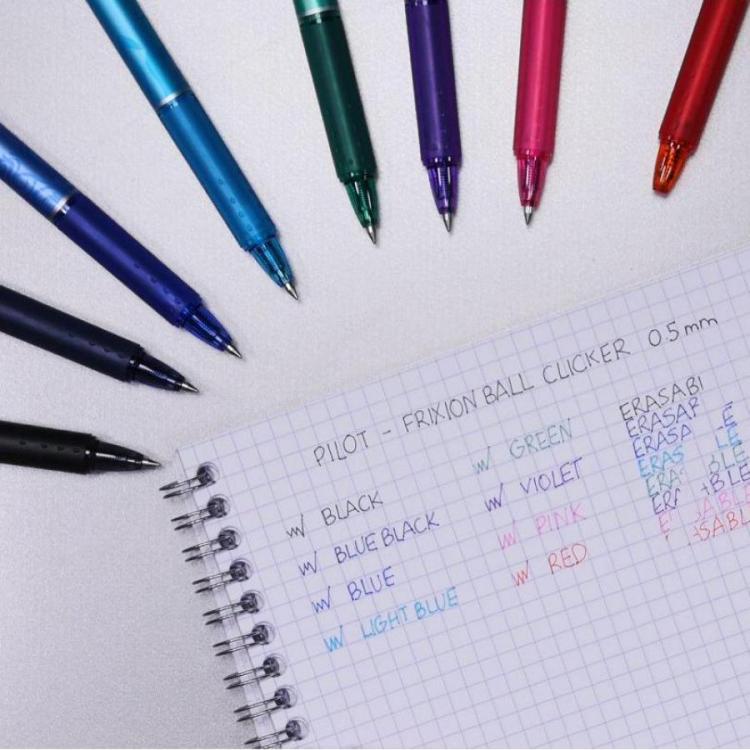 PILOT - FRIXION BALL CLICKER 0.5mm
BLACK
BLUE BLACK
BLUE
LIGHT BLUE
GREEN
VIOLET
PINK
RED
ERASABI
ERASAF
ERASA E
ERAS LE
ERA BLE
ER BLE
E ABLE
SABL